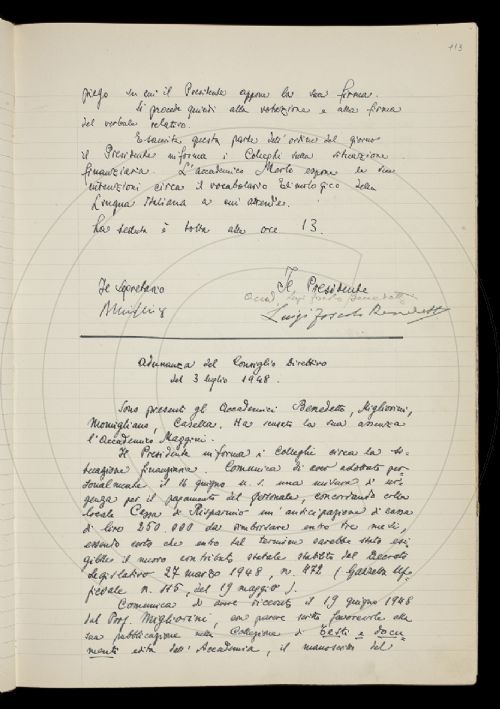 113
piego su cui il Presidente appone la sua firma.
Si procede quindi alla votazione e alla firma
del verbale relativo.
Esaurita questa parte dell'ordine del giorno
il Presidente informa i Colleghi sulla situazione
finanziaria. L'accademico Merlo espone le sue
intenzioni circa il vocabolario Etimologico della
Lingua Italiana a cui attende.
La seduta è tolta alle ore 13.
Il Segretario
Il Presidente
Luigi Foscolo Benedetto
Luigi Foscolo Benedetto
Adunanza del Consiglio Direttivo
del 3 luglio 1948.
Sono presenti gli Accademici Benedetto, Migliorini,
Momigliano, Casella. Ha scusato la sua assenza
l'Accademico Maggini.
Il Presidente informa i Colleghi circa la si-
tuazione finanziaria. Comunica di aver adottato per-
sonalmente il 16 giugno u. s. una misura di ur-
genza per il pagamento del personale, concordando colla
locale Cassa di Risparmio un'anticipazione di cassa
di lire 250.000 da rimborsare entro tre mesi,
essendo certo che entro tal termine sarebbe stato esi-
gibile il nuovo contributo statale stabilito dal Decreto
Legislativo 27 marzo 1948, n. 472 (Gazzetta Uf-
ficiale n. 115, del 19 maggio).
Comunica di avere ricevuto il 19 giugno 1948
dal Prof. Migliorini, con parere scritto favorevole alla
sua pubblicazione nella Collezione di Testi e docu-
menti edita dell'Accademia, il manoscritto del